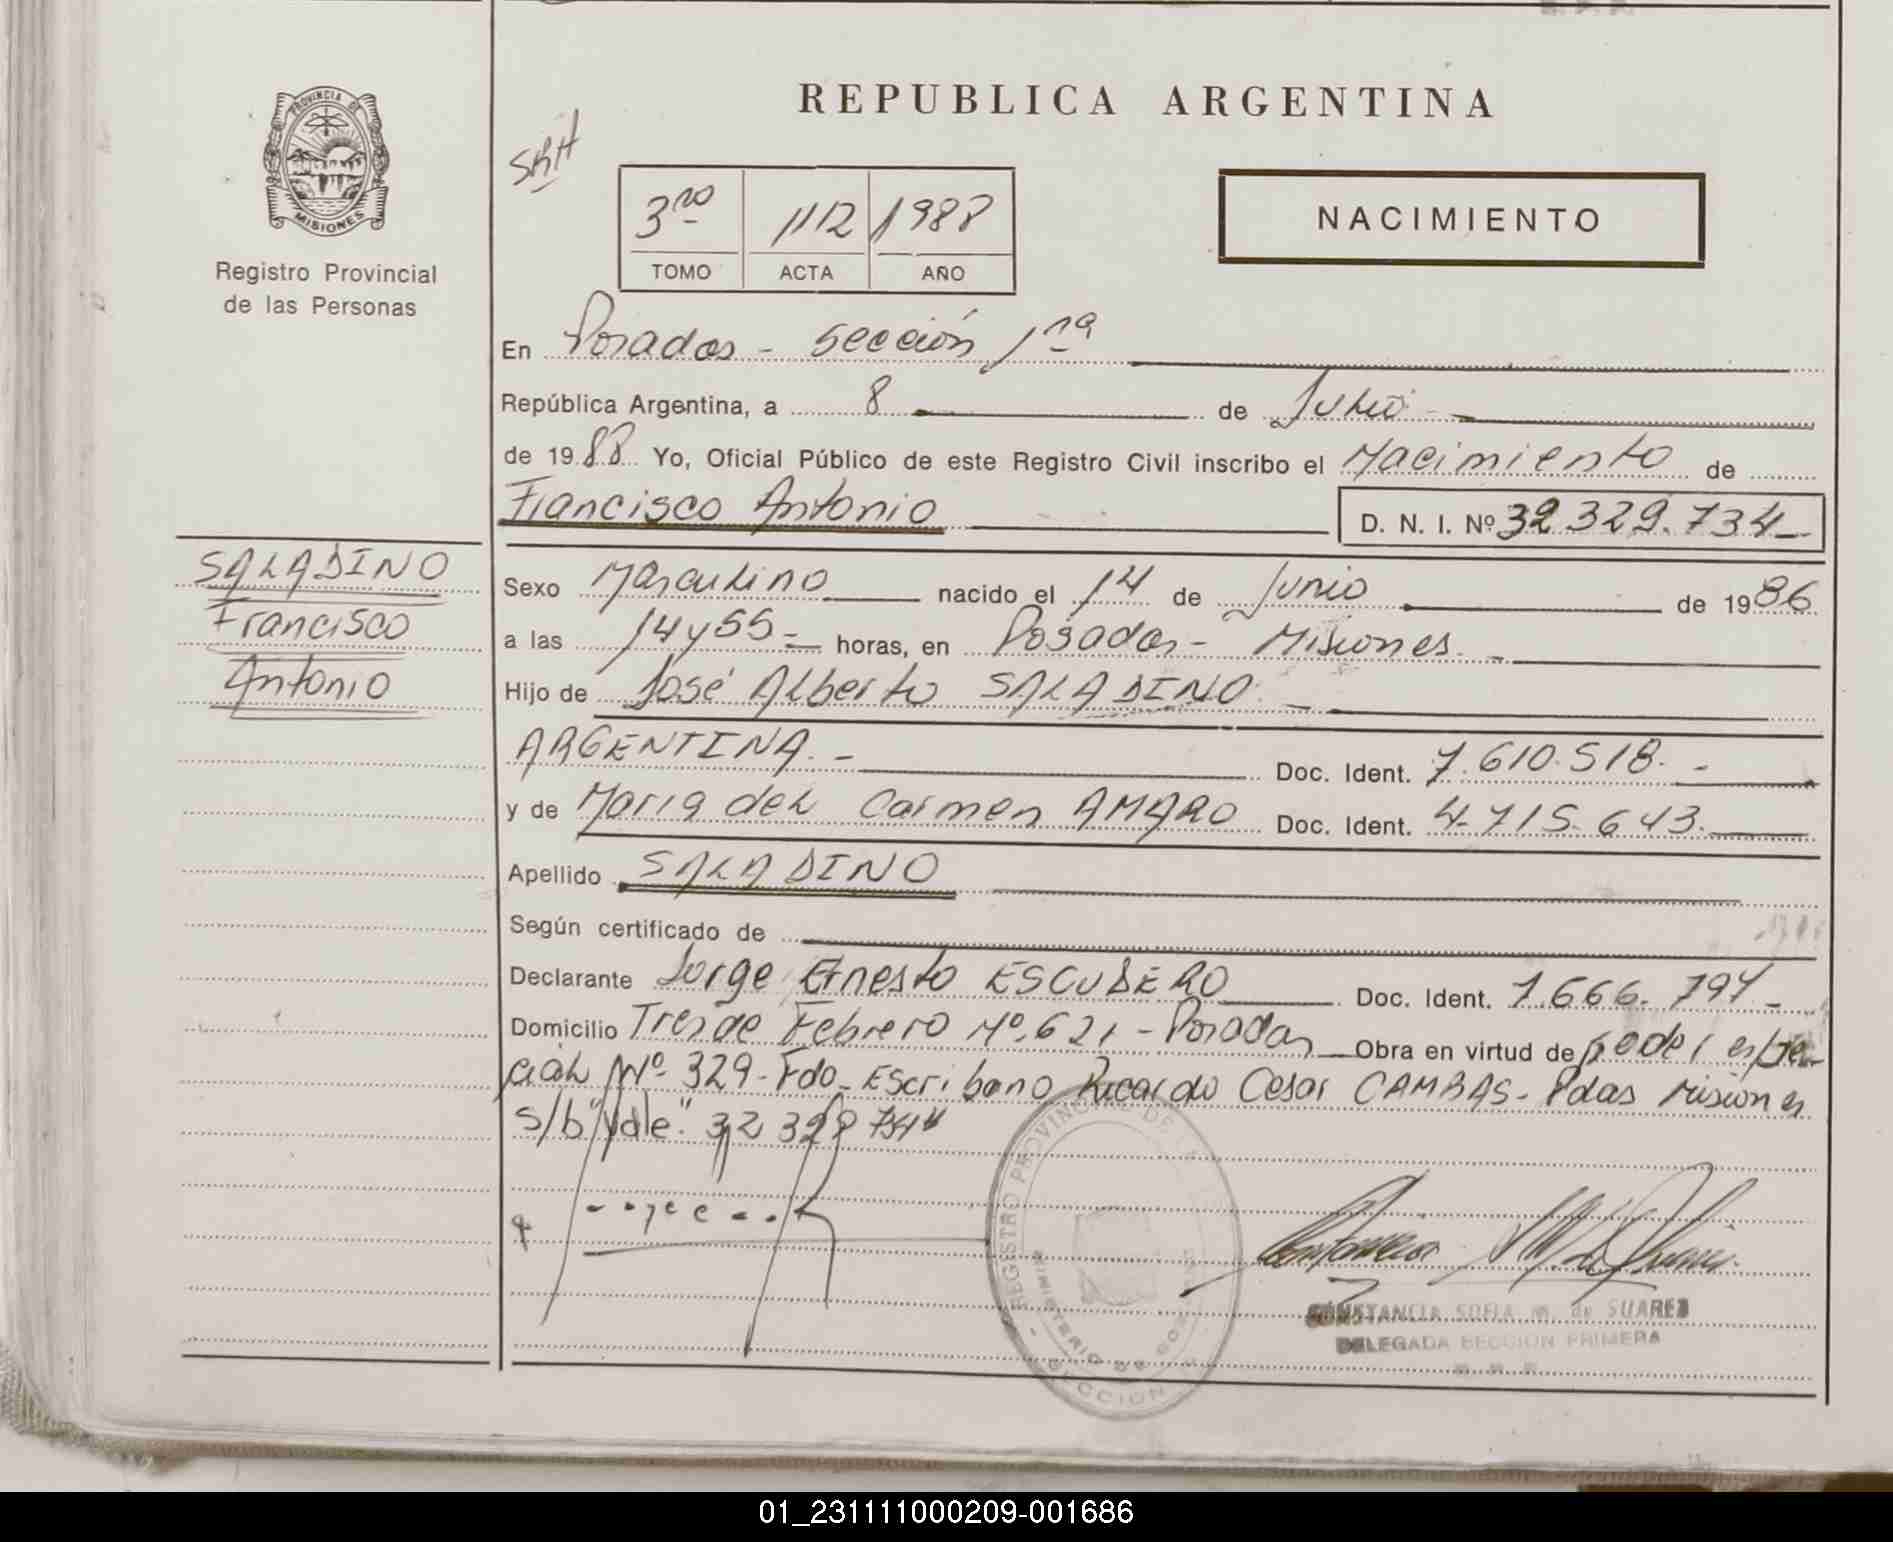 PROVINCIA DE
MISIONES
Registro Provincial
de las Personas
REPUBLICA ARGENTINA
3ro 1112 1988
TOMO ACTA AÑO
NACIMIENTO
En Posadas - Sección 1ra
República Argentina, a 8 de Julio
de 1988 Yo, Oficial Público de este Registro Civil inscribo el Nacimiento de
Francisco Antonio D. N. I. Nº 32 329.734
SALADINO
Francisco
Antonio
Sexo Masculino nacido el 14 de Junio de 1986
a las 14 y 55 = horas, en Posadas - Misiones. -
Hijo de José Alberto SALADINO. -
ARGENTINA. - Doc. Ident. 7.610.518. -
y de Maria del Carmen AMARO Doc. Ident. 4.715.643.
Apellido SALADINO
Según certificado de
Declarante Jorge Ernesto ESCUDERO Doc. Ident. 7.666.794 -
Domicilio Tres de Febrero Nº 621 - Posadas Obra en virtud de poder espe-
cial Nº 329 - Fdo. Escribano Ricardo Cesar CAMBAS - Pdas Misiones
s/b "Vale"
REGISTRO PROVINCIAL DE
MINISTERIO DE
SECCION
CONSTANCIA SOFIA M. de SUAREZ
DELEGADA SECCION PRIMERA
01_231111000209-001686